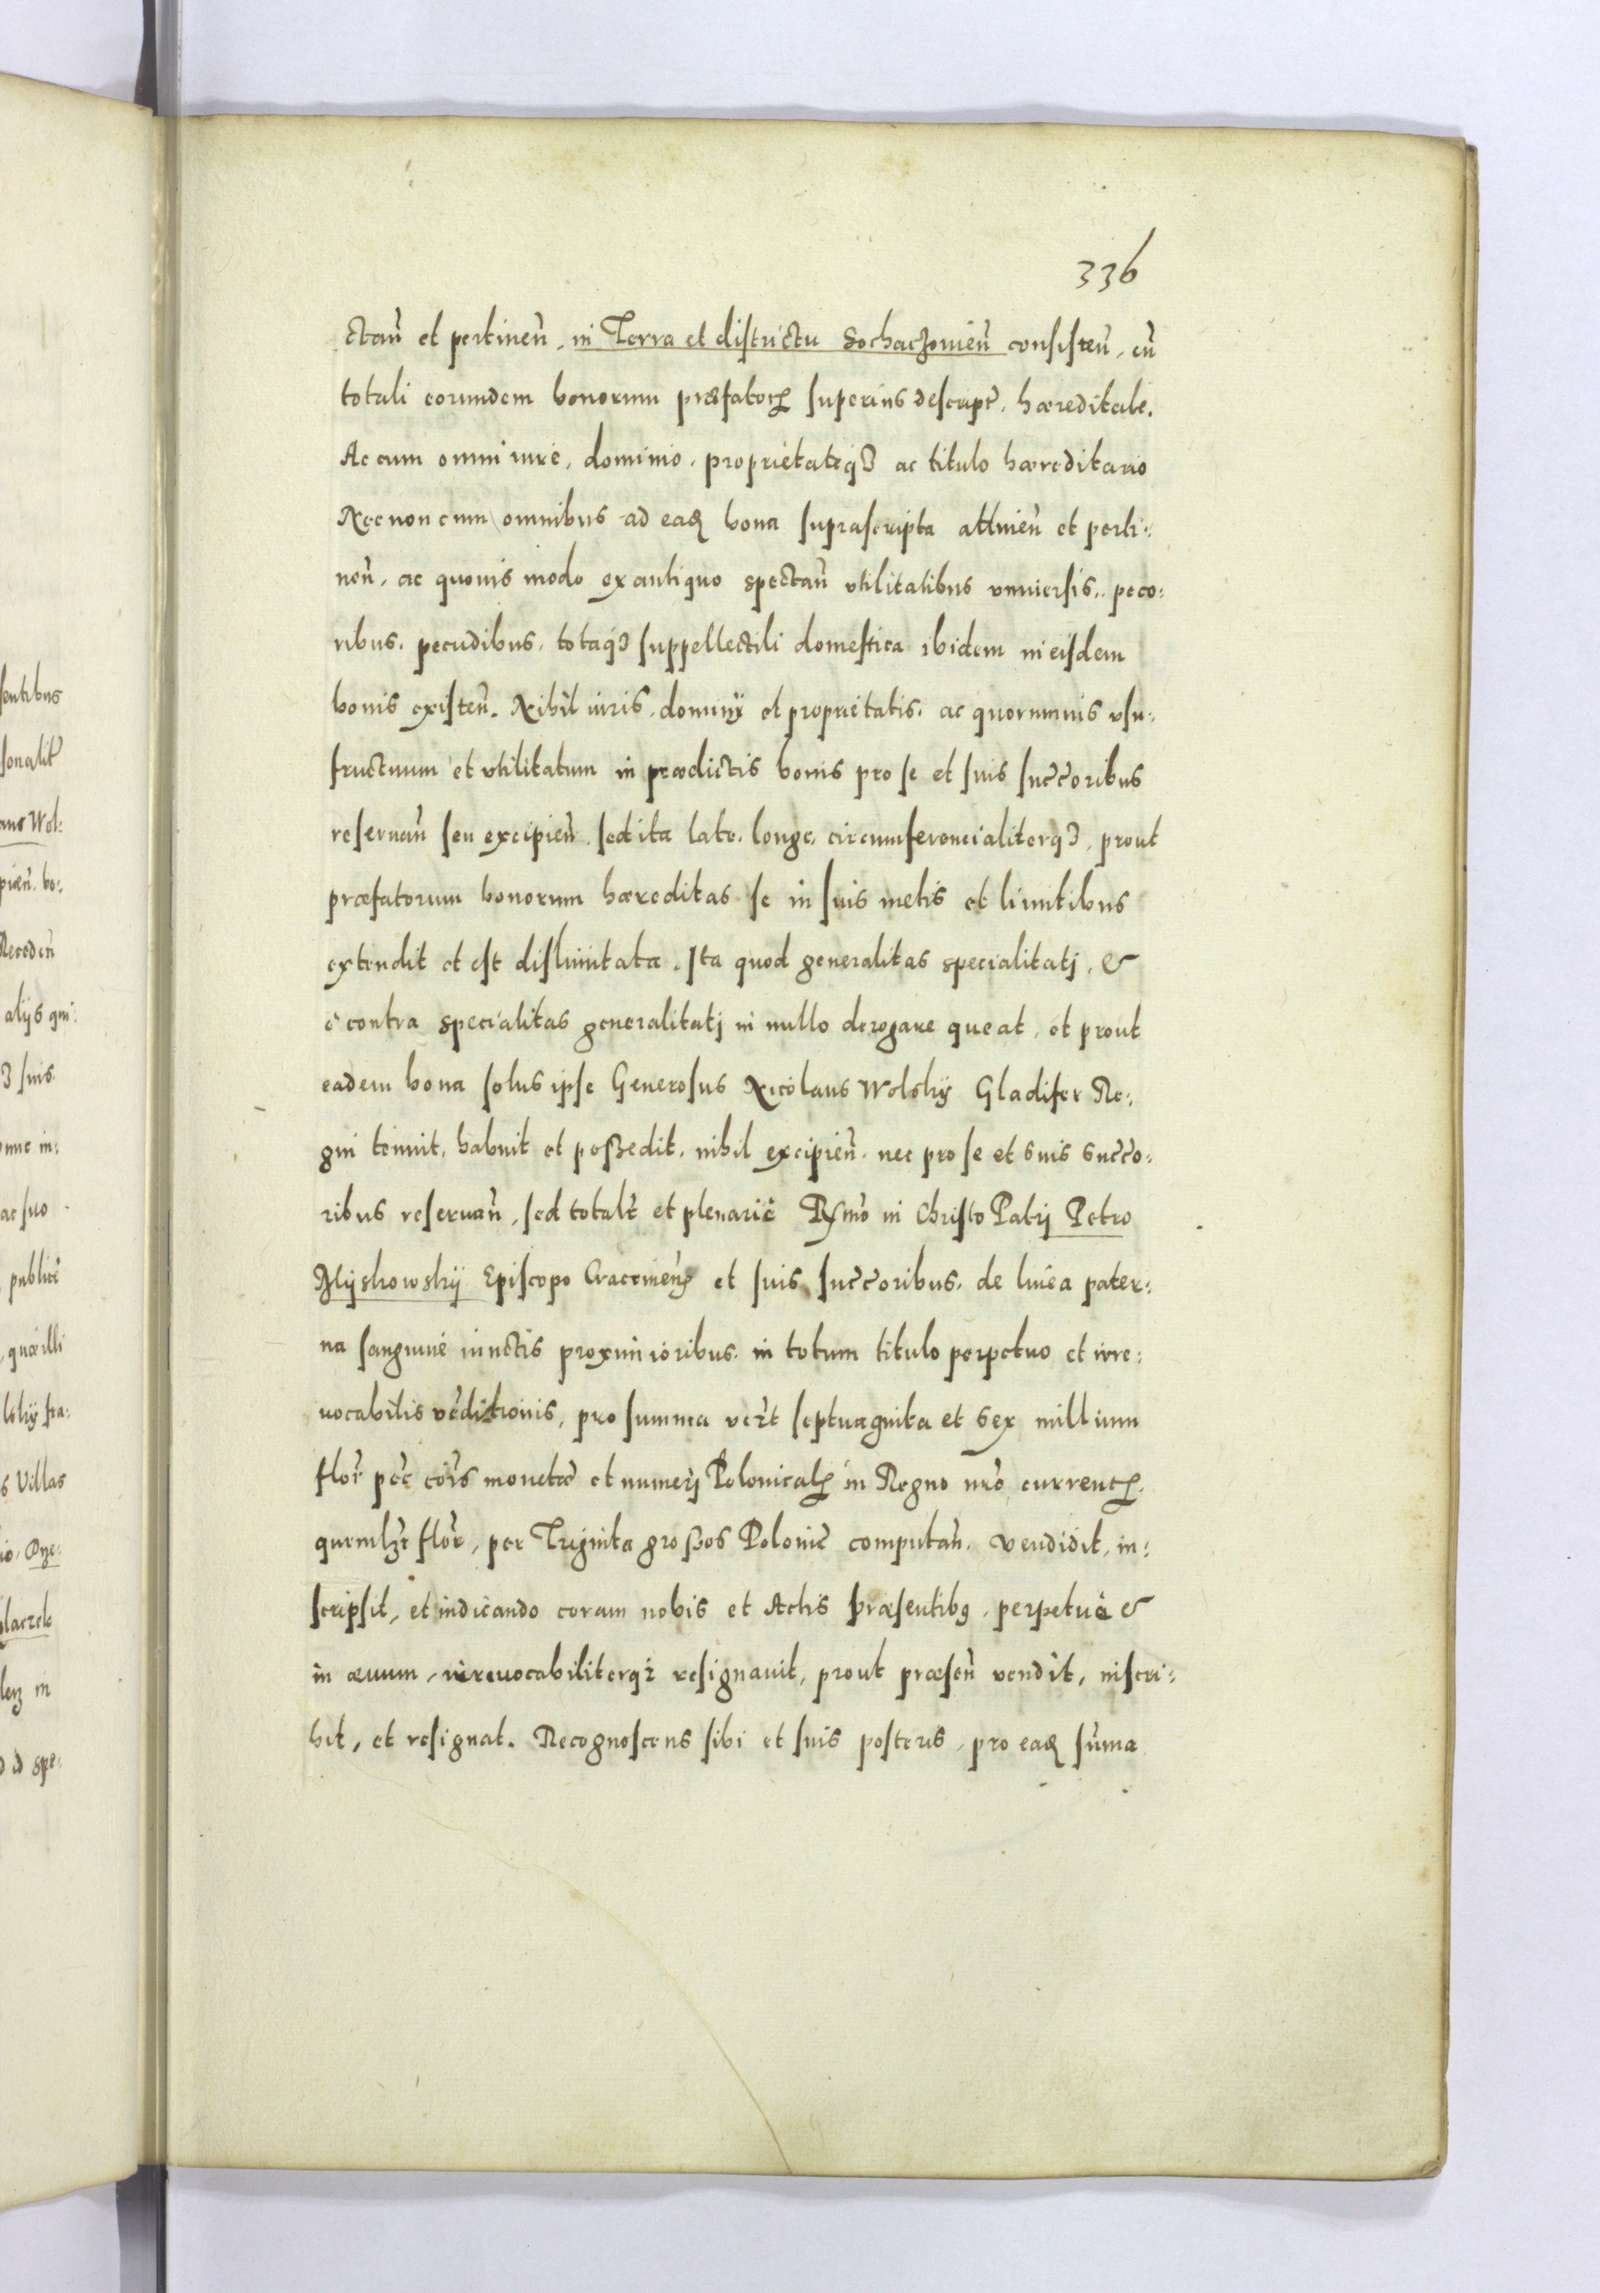 336
ctan̄ et pertinen̄, in Terra et districtu Sochaczouien̄ consisten̄, cū
totali eorundem bonorum præfatoꝝ superius descript̄, hæreditate.
Ac cum omni iure, dominio, proprietateqꝫ ac titulo hæreditario
Necnon cum omnibus ad eaꝗ bona suprascripta attinen̄ et perti:
nen̄, ac quouis modo ex antiquo spectan̄ vtilitatibus vniuersis, peco:
ribus, pecudibus, totaqꝫ suppellectili domestica ibidem in eisdem
bonis existen̄. Nihil iuris, dominij et proprietatis, ac quorumuis vsu:
fructuum et vtilitatum in prædictis bonis pro se et suis succ̄oribus
reseruan̄ seu excipien̄, sed ita late, longe, circumferencialiterqꝫ, prout
præfatorum bonorum hæreditas se in suis metis et limitibus
extendit et est dislimitata. Ita quod generalitas specialitatj, &
è contra specialitas generalitatj in nullo derogare queat, et prout
eadem bona solus ipse Generosus Nicolaus Wolskij Gladifer Re:
gni tenuit, habuit et poßedit, nihil excipien̄, nec pro se et suis succ̄o:
ribus reseruan̄, sed totalr̄ et plenariè Rẙmo in Christo Patrj Petro
Myskowskij Episcopo Cracouien̄ et suis succ̄oribus, de linea pater:
na sanguine iunctis proximioribus, in totum titulo perpetuo et irre:
uocabilis vēditionis, pro summa vcꝫt septuaginta et sex millium
flor̄ pec̄ cōis monetæ et numerj Polonicalꝭ in Regno nr̄o currentꝭ,
quemlꝫt flor̄, per Triginta großos Polonic̄ computan̄. Vendidit, in:
scripsit, et indicando coram nobis et Actis præsentibꝰ, perpetuè &
in æuum, irreuocabiliterqꝫ resignauit, prout præsen̄ vendit, inscri:
bit, et resignat. Recognoscens sibi et suis posteris, pro eaꝗ sūma